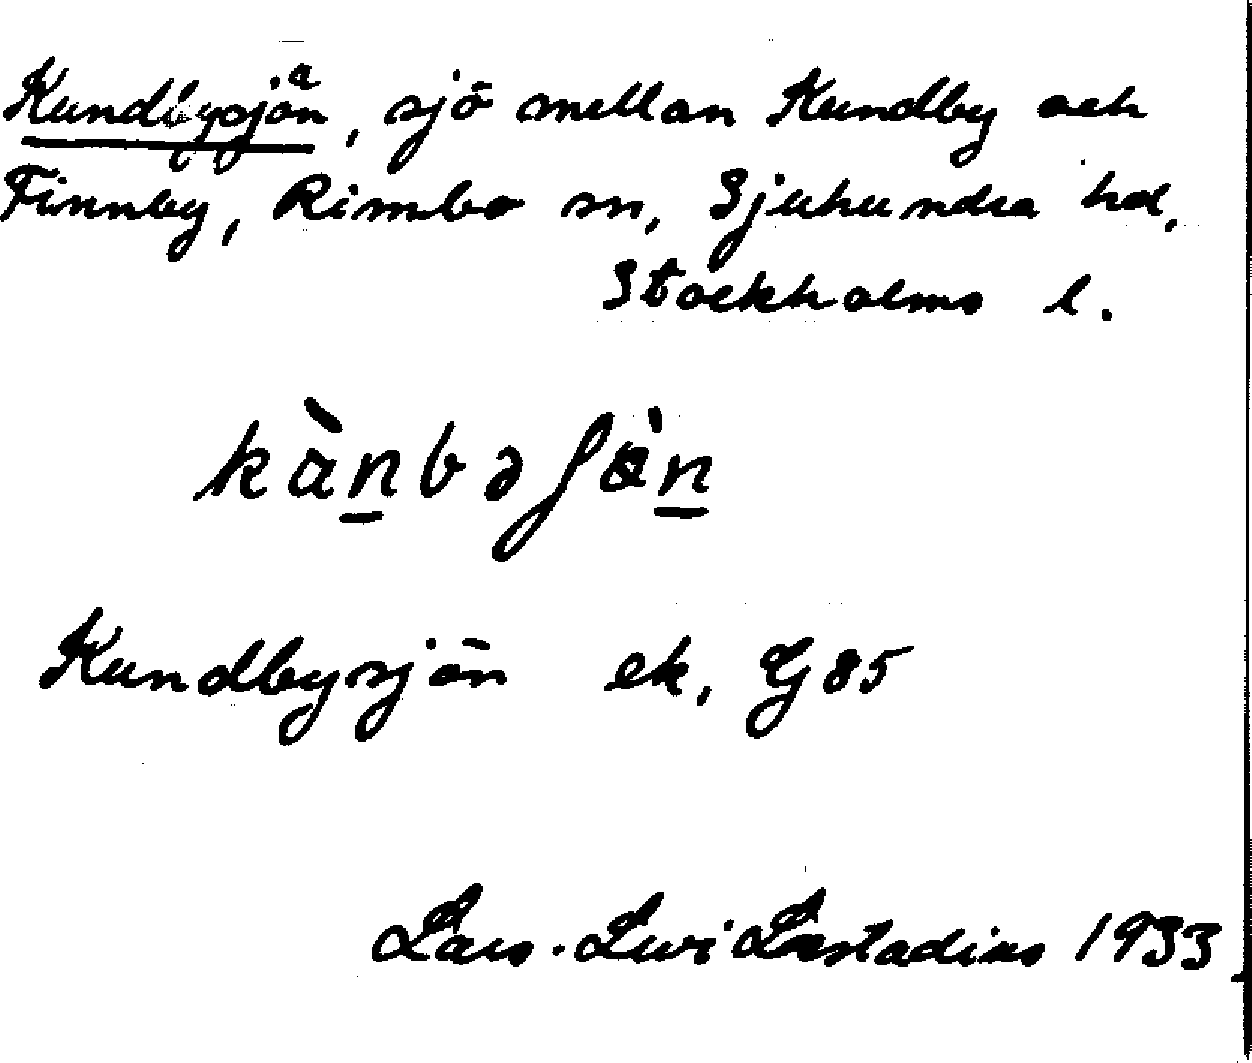 Kundbysjön a, sjö mellan Kundby och
Finnby, Rimbo sn, Sjuhundra hd,
Stockholms l.
kànbəʃàn
Kundbysjön ek, G85
Lars-Levi Læstadius 1933